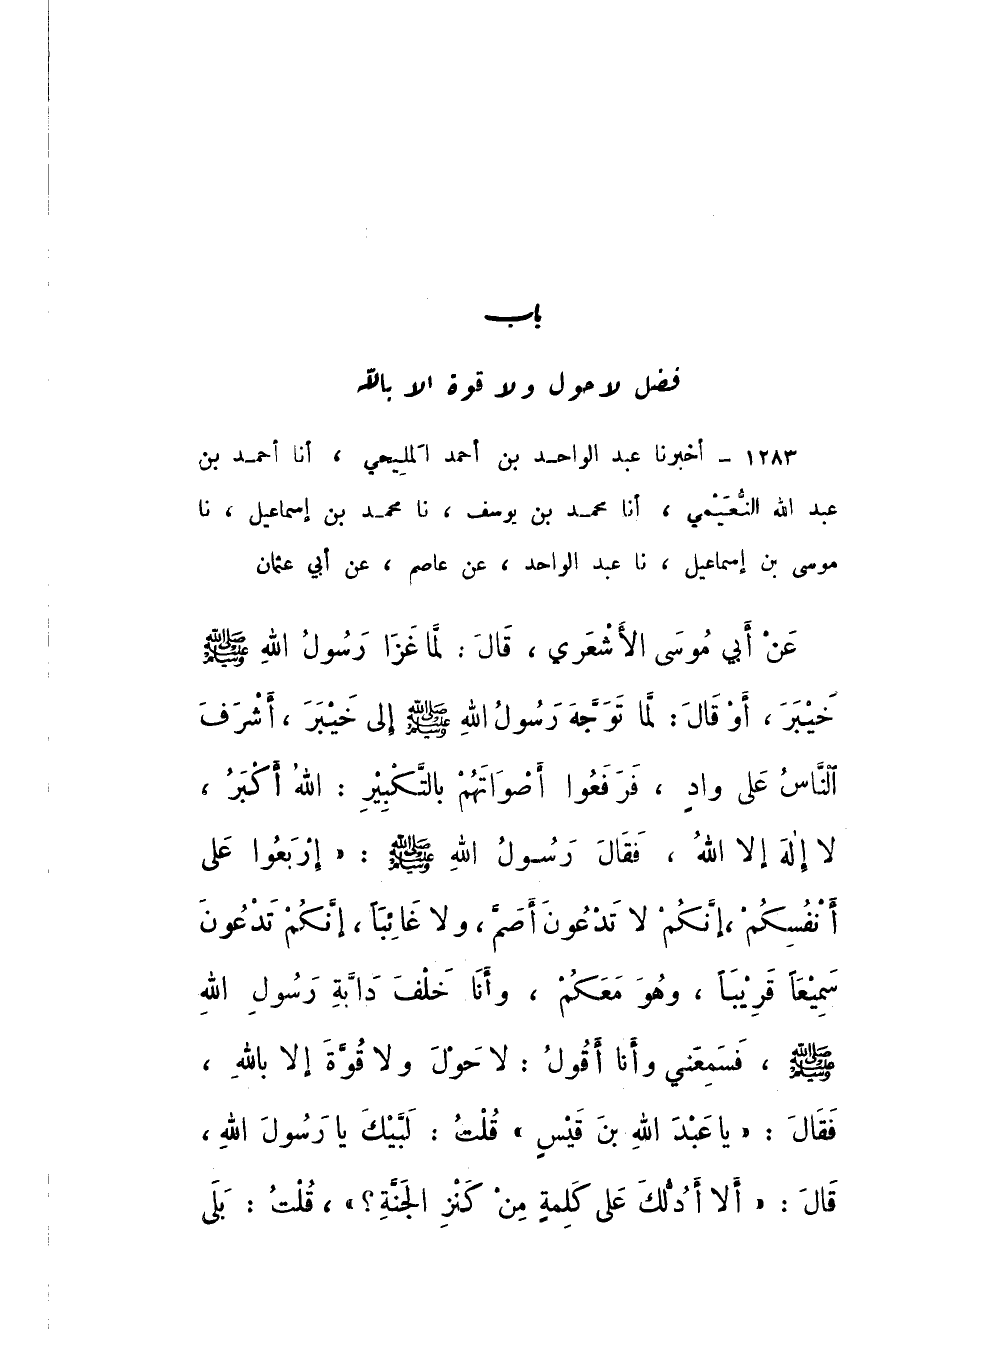 باب
فضل لا حول ولا قوة الا بالله
١٢٨٣ - أخبرنا عبد الواحد بن أحمد المليحي ، أنا أحمد بن
عبد الله النُّعَيْمي ، أنا محمد بن يوسف ، نا محمد بن إسماعيل ، نا
موسى بن إسماعيل ، نا عبد الواحد ، عن عاصم ، عن أبي عثمان
عَنْ أَبي مُوسَى الأَشْعَري ، قَالَ : لَمَّا غَزَا رَسُولُ اللهِ ﷺ
خَيْبَرَ ، أَوْ قَالَ : لَمَّا تَوَجَّهَ رَسُولُ اللهِ ﷺ إلى خَيْبَرَ ، أَشْرَفَ
النَّاسُ عَلى وادٍ ، فَرَفَعُوا أَصْوَاتَهُمْ بالتَّكْبِيْرِ : اللهُ أَكْبَرُ ،
لا إلٰهَ إلا اللهُ ، فَقَالَ رَسُولُ اللهِ ﷺ : « إرْبَعُوا عَلى
أَنْفُسِكُمْ ، إنَّكُمْ لا تَدْعُونَ أَصَمَّ ، ولا غَائِبَاً ، إنَّكُمْ تَدْعُونَ
سَمِيْعَاً قَرِيْبَاً ، وهُوَ مَعَكُمْ ، وأَنَا خَلْفَ دَابَّةِ رَسُولِ اللهِ
ﷺ ، فَسَمِعَني وأَنا أَقُولُ : لا حَوْلَ ولا قُوَّةَ إلا باللهِ ،
فَقَالَ : « يا عَبْدَ اللهِ بنَ قَيْسٍ » قُلْتُ : لَبَّيْكَ يا رَسُولَ اللهِ ،
قَالَ : « أَلا أَدُلُّكَ عَلى كَلِمةٍ مِنْ كَنْزِ الجَنَّةِ ؟ » ، قُلْتُ : بَلَى